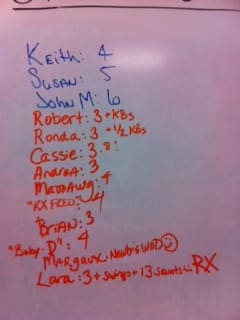 Keith: 4
Susan: 5
John M: 6
Robert: 3 + KBs
Ronda: 3 - 1/2 KBs
Cassie: 3.8!
Andrea: 3
Mattdawg: 4
"RX FRED": 4
Brian: 3
"Baby D": 4
Margaux: Newbie WOD
Lara: 3 + swings + 13 squats = RX